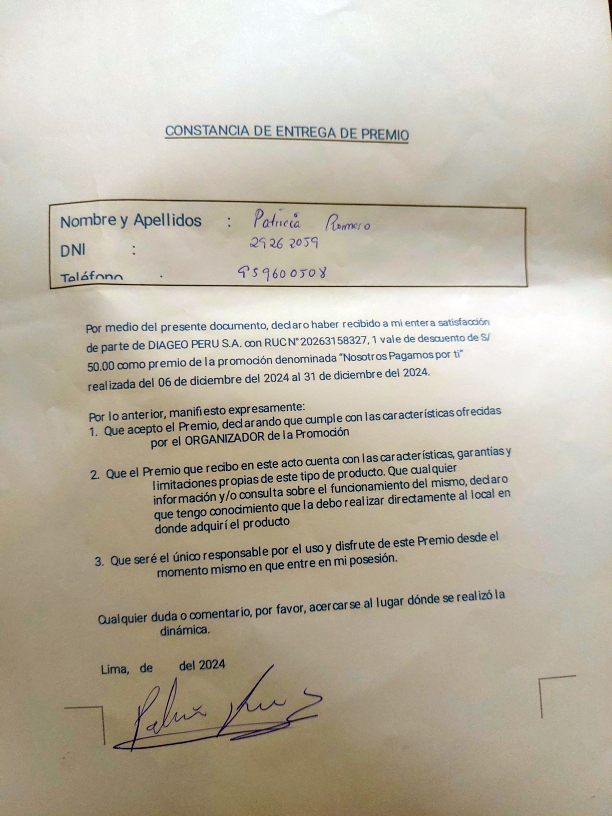 CONSTANCIA DE ENTREGA DE PREMIO
Nombre y Apellidos : Patricia Romero
DNI : 29262059
Teléfono : 959600508
Por medio del presente documento, declaro haber recibido a mi entera satisfacción
de parte de DIAGEO PERU S.A. con RUC N° 20263158327, 1 vale de descuento de S/
50.00 como premio de la promoción denominada "Nosotros Pagamos por ti"
realizada del 06 de diciembre del 2024 al 31 de diciembre del 2024.
Por lo anterior, manifiesto expresamente:
1. Que acepto el Premio, declarando que cumple con las características ofrecidas
por el ORGANIZADOR de la Promoción
2. Que el Premio que recibo en este acto cuenta con las características, garantías y
limitaciones propias de este tipo de producto. Que cualquier
información y/o consulta sobre el funcionamiento del mismo, declaro
que tengo conocimiento que la debo realizar directamente al local en
donde adquirí el producto
3. Que seré el único responsable por el uso y disfrute de este Premio desde el
momento mismo en que entre en mi posesión.
Cualquier duda o comentario, por favor, acercarse al lugar dónde se realizó la
dinámica.
Lima, de del 2024